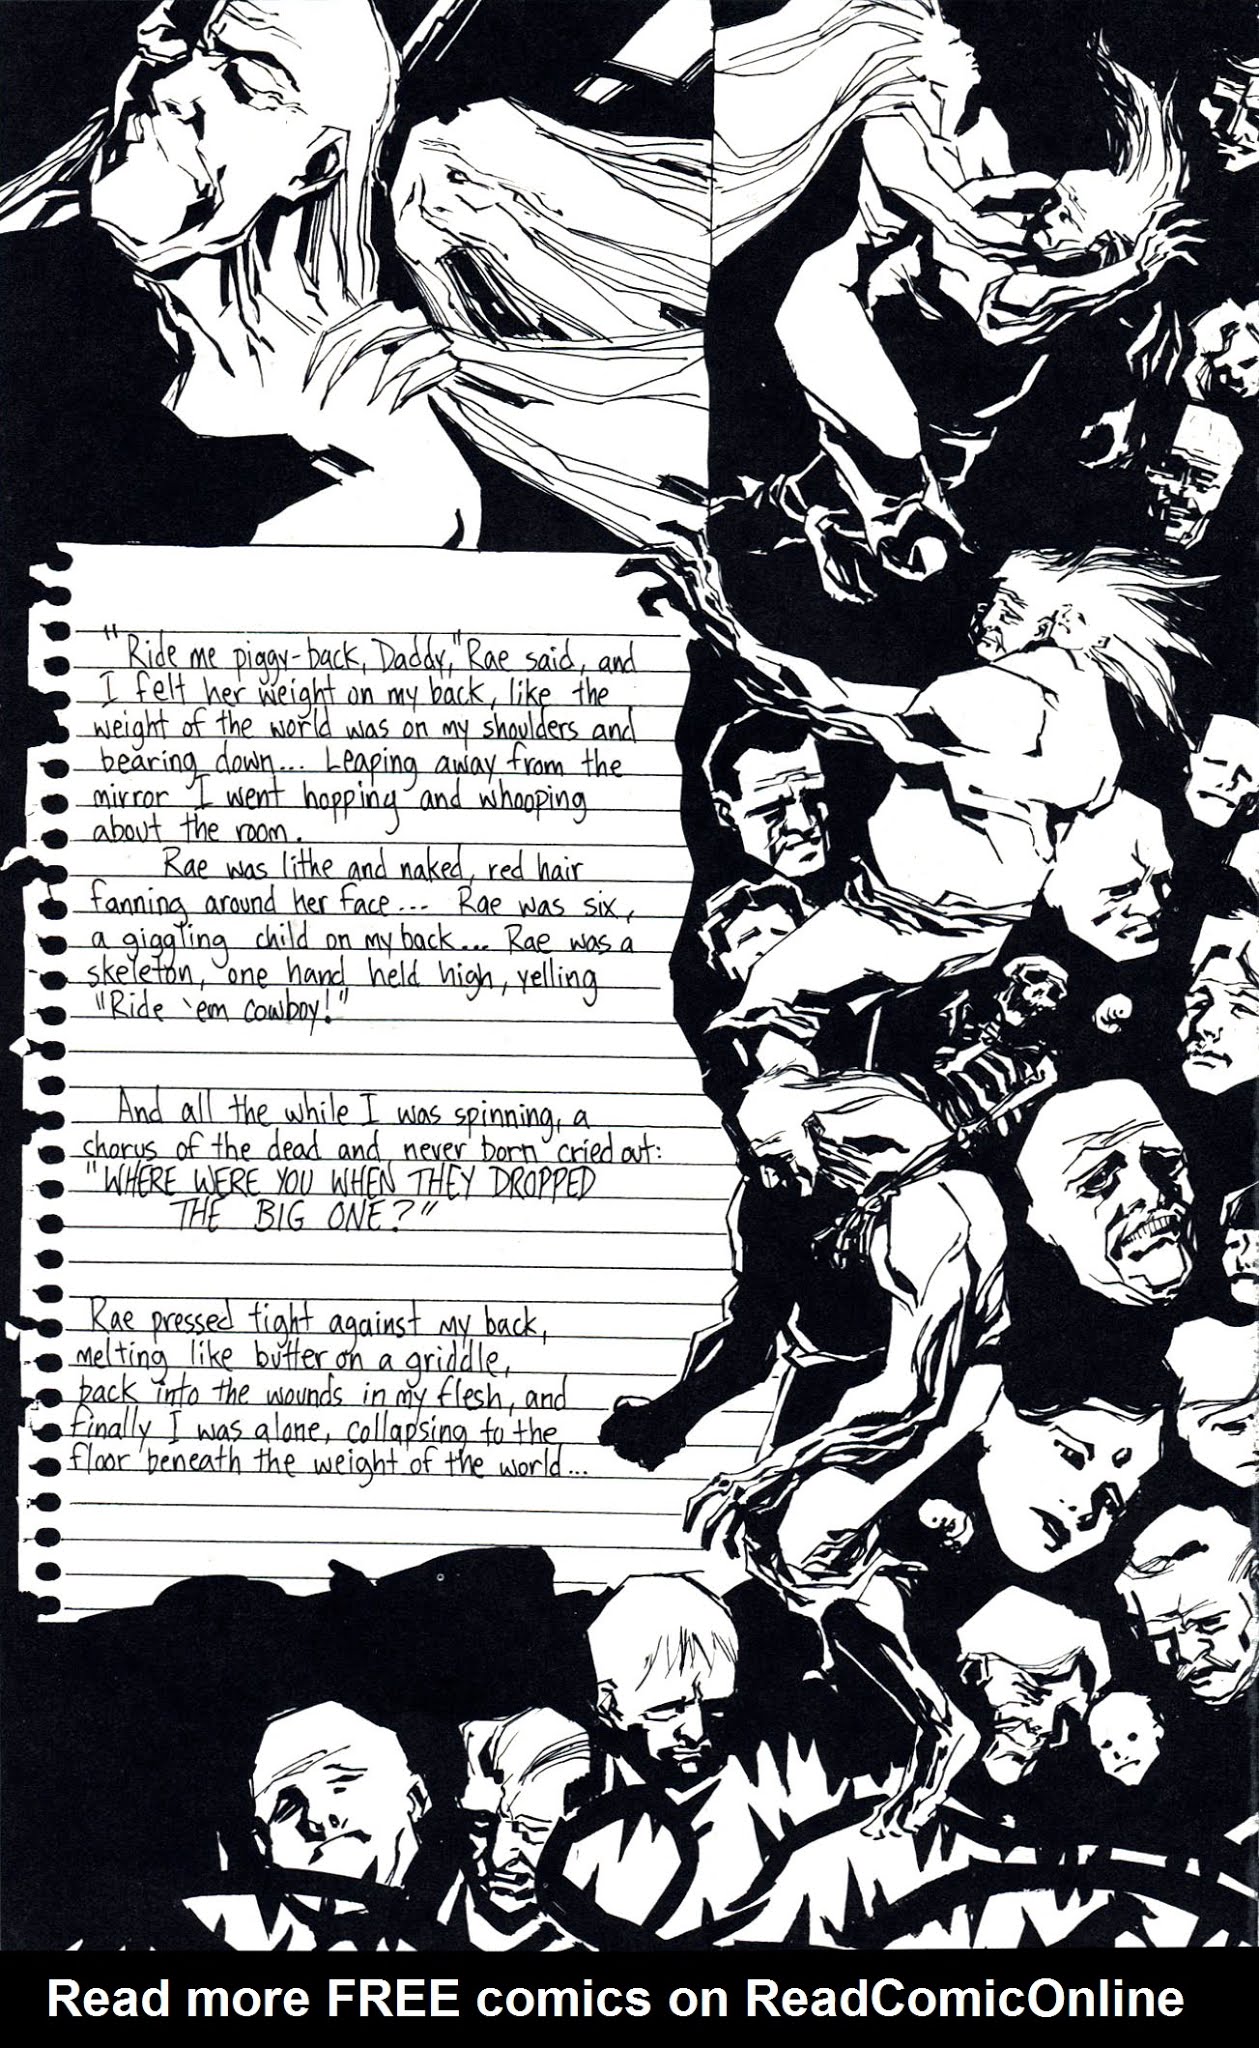 "Ride me piggy-back, Daddy," Rae said, and
I felt her weight on my back, like the
weight of the world was on my shoulders and
bearing down... Leaping away from the
mirror I went hopping and whooping
about the room.
Rae was lithe and naked, red hair
fanning around her face... Rae was six,
a giggling child on my back... Rae was a
skeleton, one hand held high, yelling
"Ride 'em cowboy!"
And all the while I was spinning, a
chorus of the dead and never born cried out:
"WHERE WERE YOU WHEN THEY DROPPED
THE BIG ONE?"
Rae pressed tight against my back,
melting like butter on a griddle,
back into the wounds in my flesh, and
finally I was alone, collapsing to the
floor beneath the weight of the world...
Read more FREE comics on ReadComicOnline